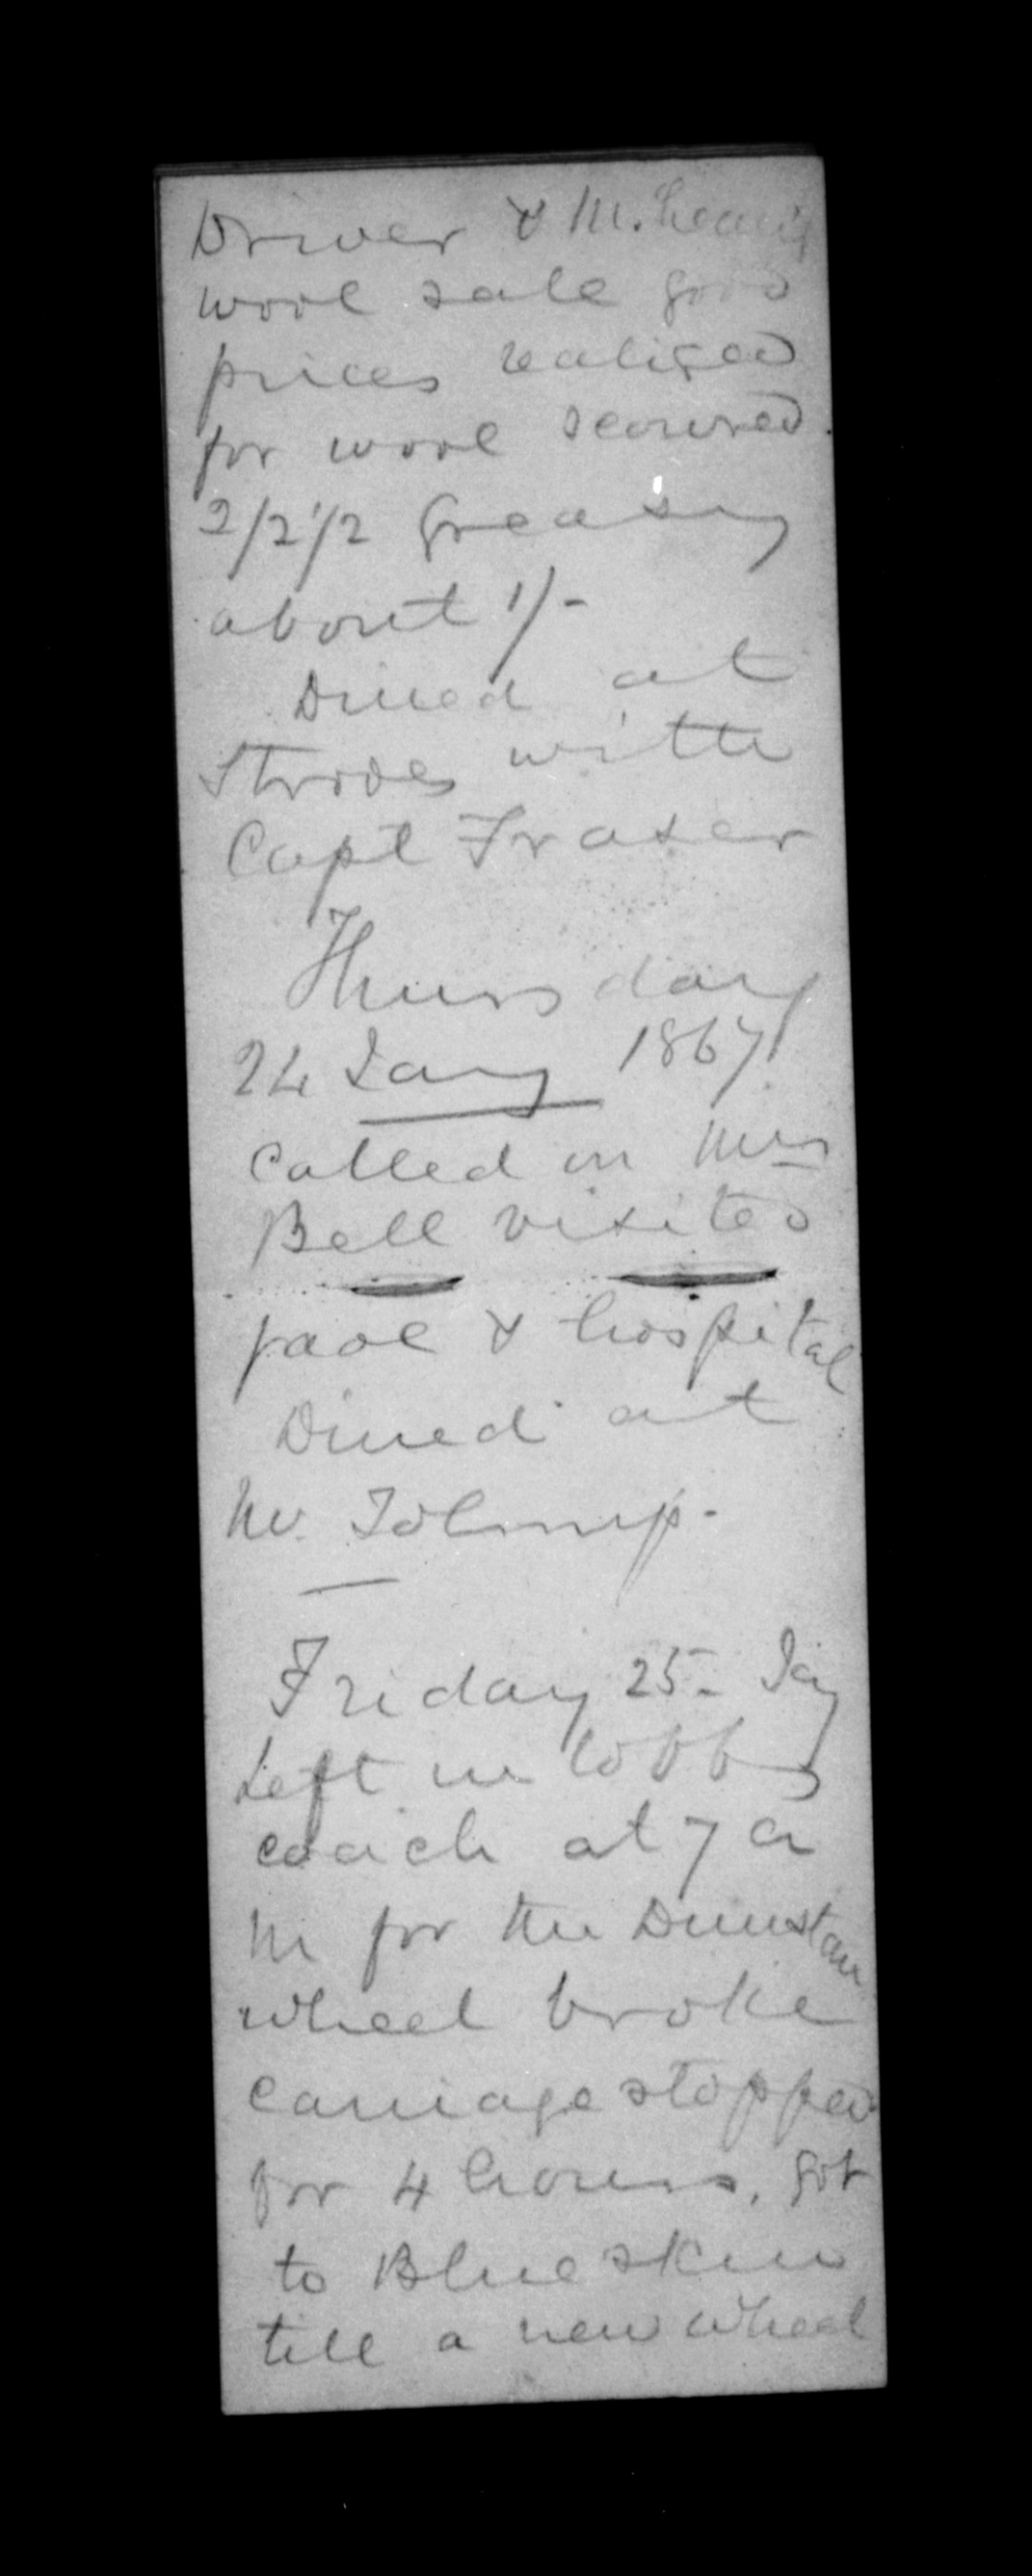 Driver & McLean's
wool sale good
prices realised
for wool scoured.
2/2 1/2 Greasy
about 1/-
Dined at
Strodes with
Capt Fraser
Thursday
24 Jany 1867
Called on Mrs
Bell visited
gaol & hospital
Dined at
Mr
Friday 25. Jay
Left in Cobbs
coach at 7 a
m for the Dunstan
wheel broke
carriage stopped
for 4 hours, got
to Blueskin
till a new wheel